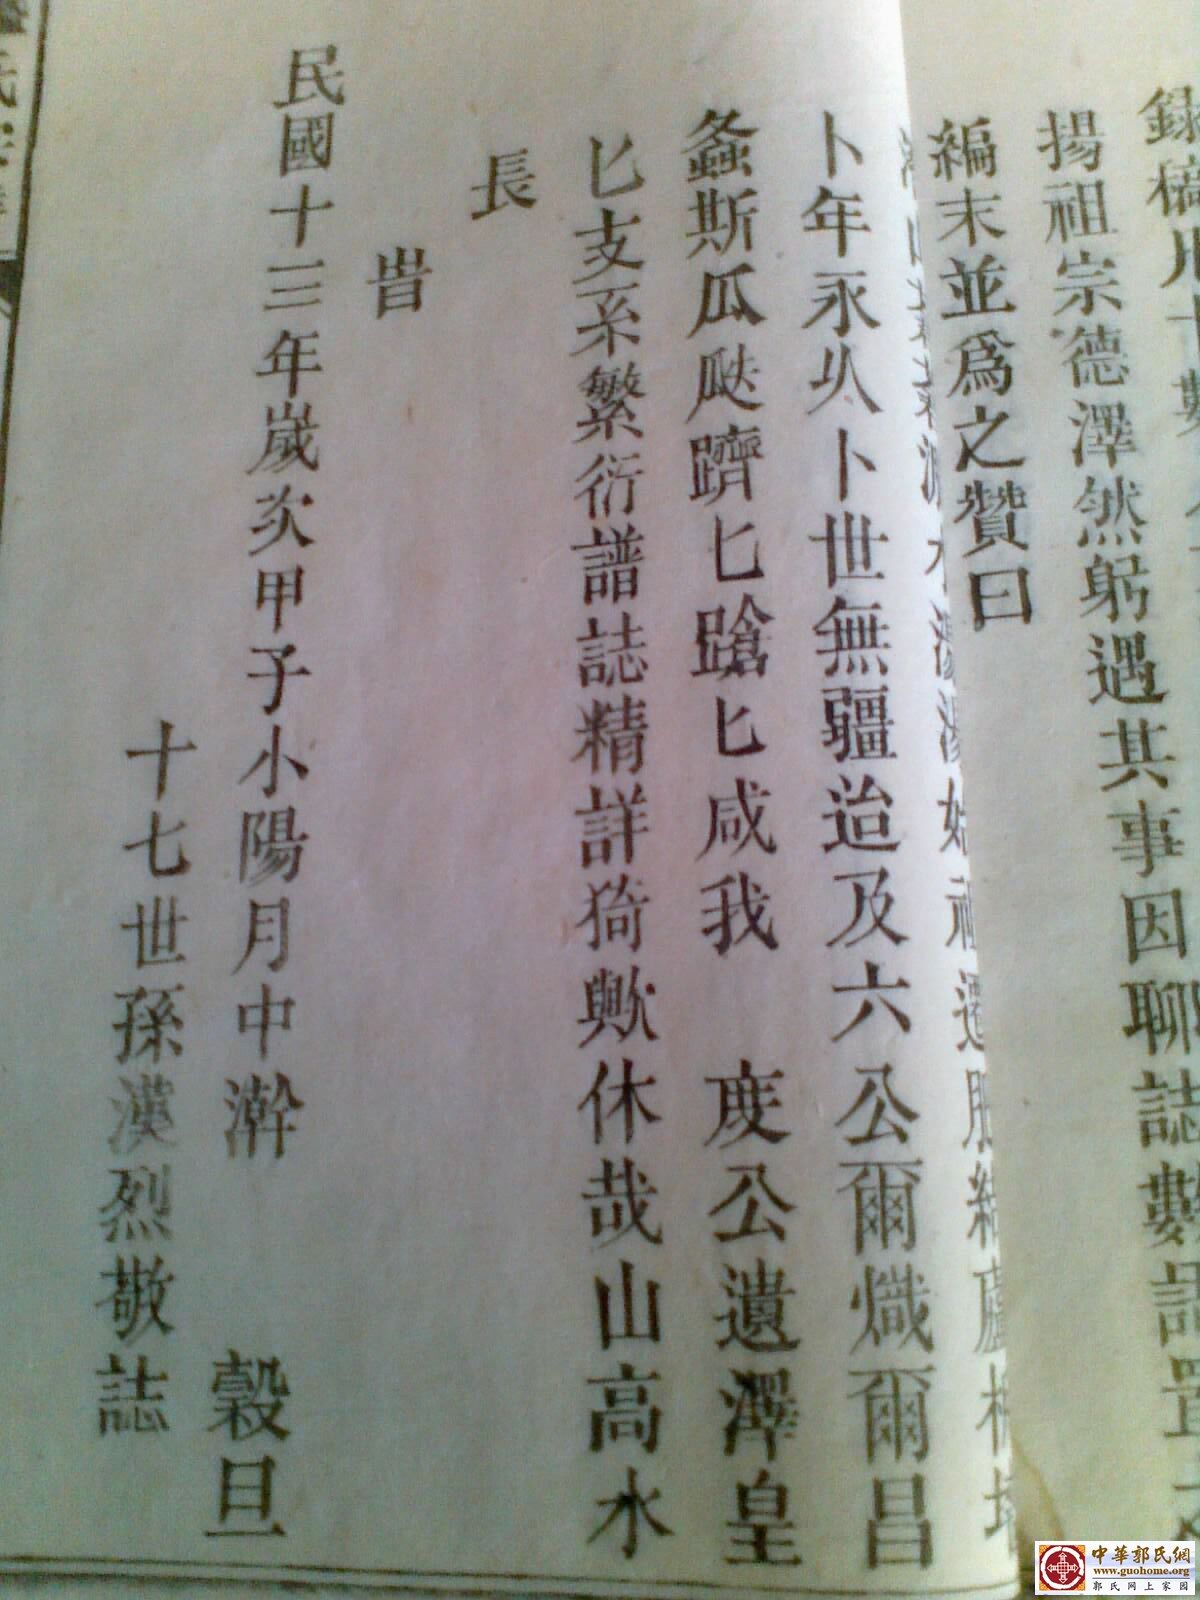 揚祖宗德澤然躬遇其事因聊誌數語置
編末並為之贊曰
卜年永㐺卜世無疆迨及六公爾熾爾昌
螽斯瓜瓞躋匕蹌匕咸我　度公遺澤皇
匕支系繁衍譜誌精詳猗歟休哉山高水
長
旹
民國十三年嵗次甲子小陽月中澣　穀旦
十七世孫漢烈敬誌
中華郭氏網
www.guohome.org
郭氏网上家园